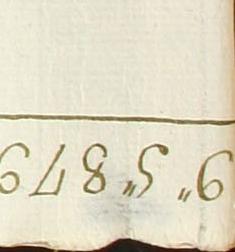 9" 5" 879